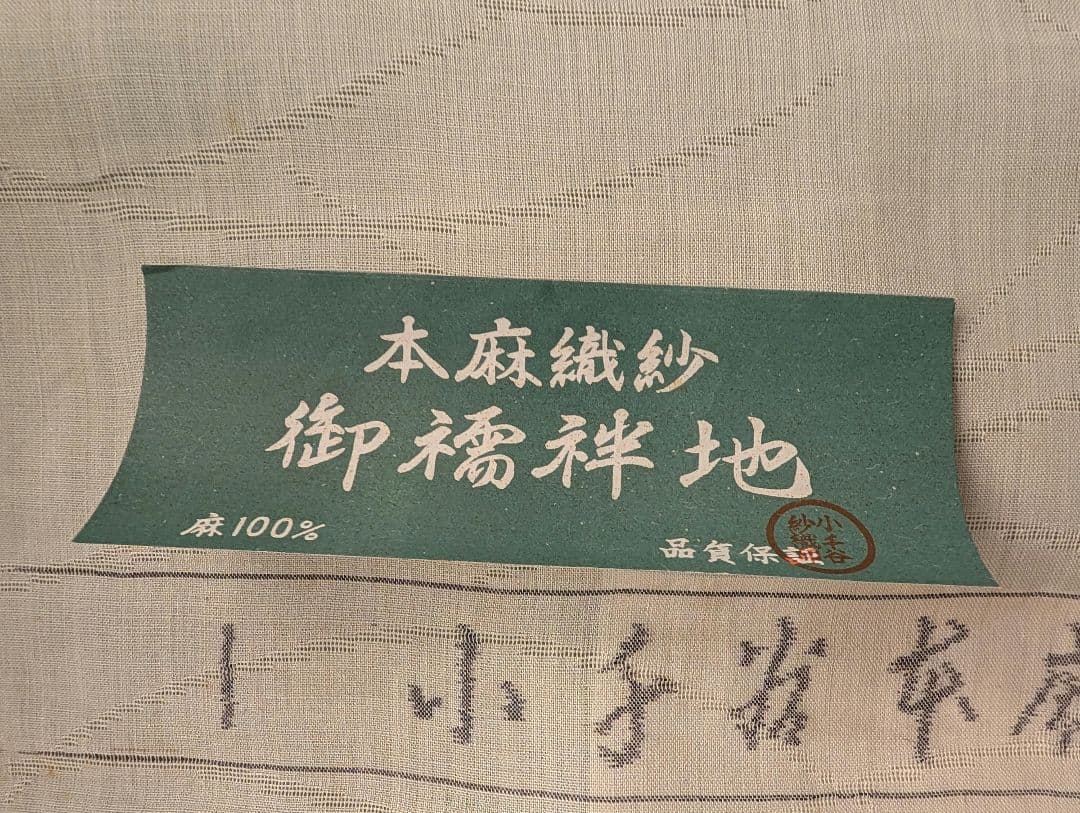 本麻織紗
御襦袢地
麻100%
品質保証
小千谷
紗織
小千谷本麻